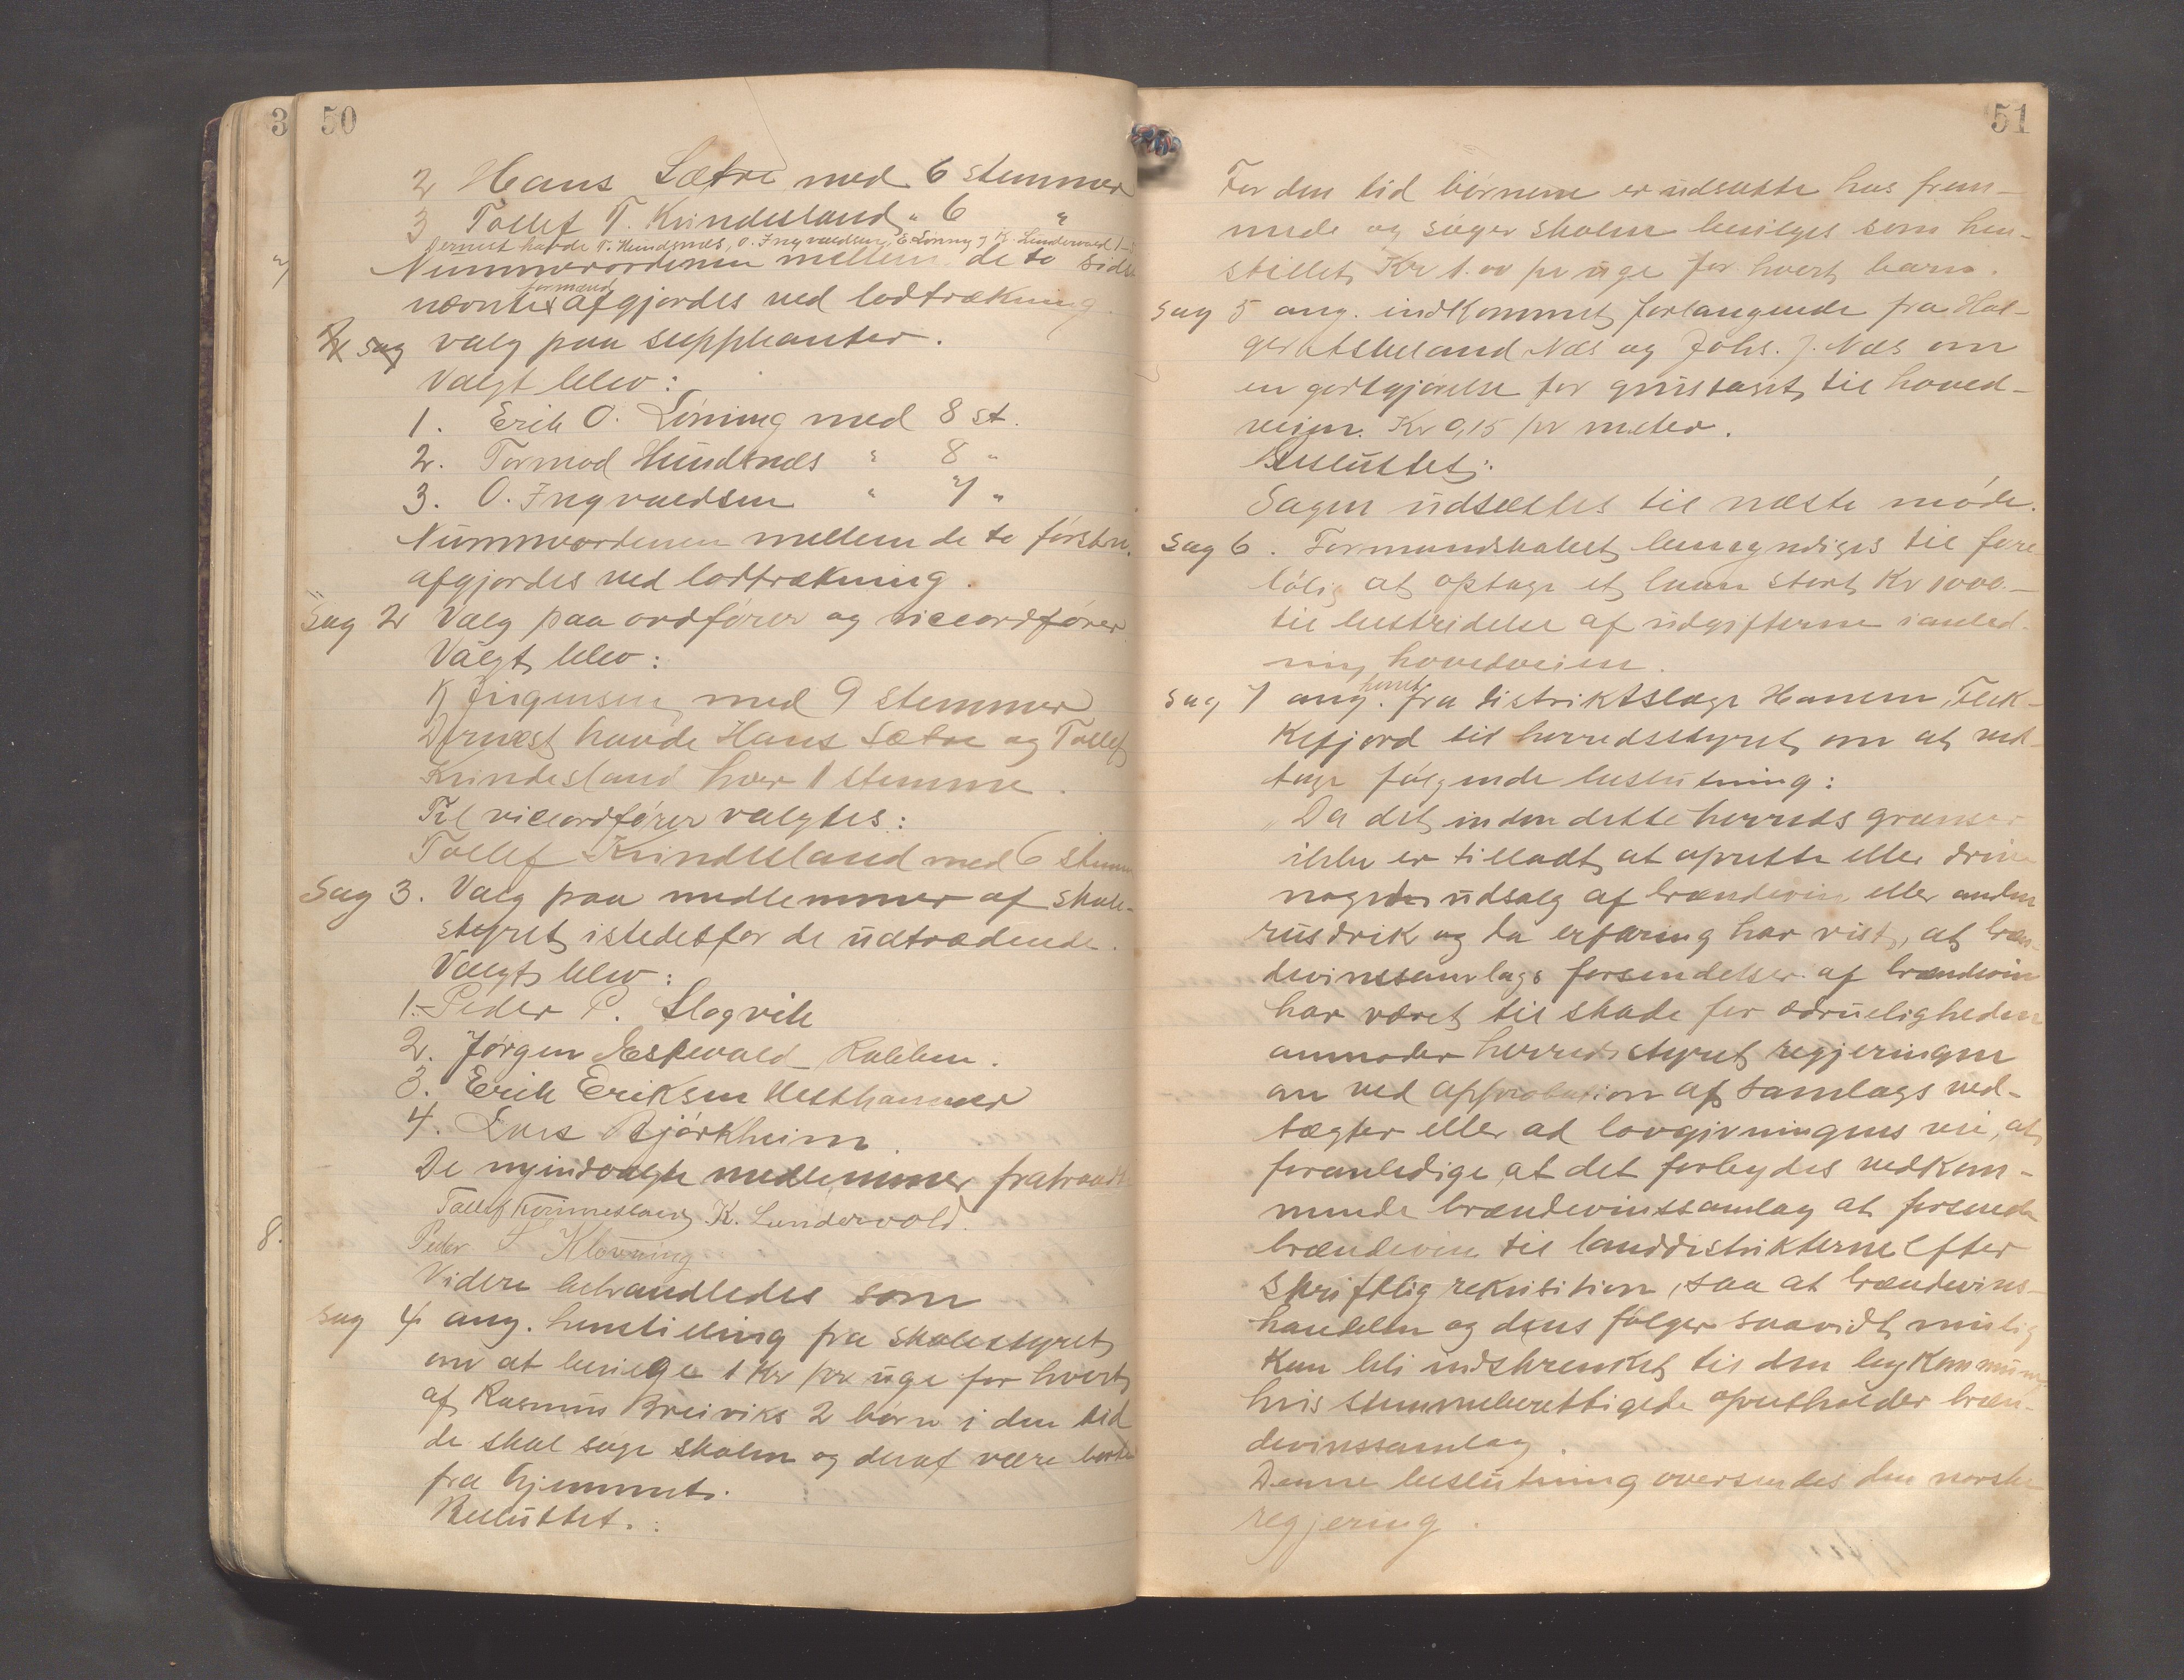 3 50
2 Hans Sætre med 6 stemmer
3 Tollef T. Kvindesland " 6 "
Dernest havde T. Hundsnes, O. Ingvaldsen, E. Lönning og K. Lundervold 1
Nummerordenen mellem de to sidst
nævnte formænd afgjordes ved lodtrækning.
2 sag valg paa supplianter.
Valgt blev:
1. Erik O. Löning med 8 st.
2. Tormod Hundsnæs " 8 "
3. O. Ingvaldsen " 7 "
Nummerordenen mellem de to förstn.
afgjordes ved lodtrækning.
Sag 2 Valg paa ordförer og viceordförer
Valgt blev:
Jörgensen med 9 stemmer
Dernæst havde Hans Sætre og Tollef
Kvindesland hver 1 stemme.
Til viceordförer valgtes:
Tollef Kvindesland med 6 stemm
Sag 3. Valg paa medlemmer af skole-
styret istedetfor de udtrædende.
Valgt blev:
1. Peder P. Slogvik
2. Jörgen Espevold
3. Erik Eriksen Hesthammer
4. Lars Björkheim.
De nyindvalgte medlemmer fratraadt
Tollef Kvinnesland K. Lundervold.
8. Peder Klovning
Videre behandledes som
sag 4 ang. henstilling fra skolestyret
om at bevilge 1 Kr pr uge for hvert
af Rasmus Breiviks 2 börn i den tid
de skal söge skolen og deraf være borte
fra hjemmet.
Besluttet:
51
For den tid börnene er udsatte hos frem-
mede og söger skolen bevilges som hen-
stillet Kr 1.00 pr uge for hvert barn.
Sag 5 ang. indkommet forlangende fra Hol-
ger Ask­eland Næs og Johs. J. Næs om
en godtgjörelse for grustaget til hoved-
veien. Kr 0,15 pr meter.
Besluttet:
Sagen udsættes til næste möde.
Sag 6. Formandskabet bemyndiges til fore
lölig at optage et laan stort Kr 1000.-
til bestridelse af udgifterne i anled-
ning hovedveien.
Sag 7 ang. henst. fra distriktslæge Hansen, Flek-
kefjord til herredsstyret om at ved-
tage fölgende beslutning:
"Da det inden dette herreds grænser
ikke er tilladt at oprette eller drive
noget udsalg af brændevin eller anden
rusdrik og da erfaring har vist, at bræn-
devinssamlags forsendelser af brændevin
har været til skade for ædrueligheden
anmoder herredsstyret regjeringen
om ved approbation af samlags ved-
tægter eller ad lovgivningens vei, at
foranledige at det forbydes vedkom-
mende brændevinssamlag at forsende
brændevin til landdistrikterne efter
skriftlig rekvisition, saa at brændevins-
handelen og dens fölger saavidt mulig
kan bli indskrenket til den bykommune
hvis stemmeberettigede opretholder bræn-
devinssamlag.
Denne beslutning oversendes den norske
regjering.